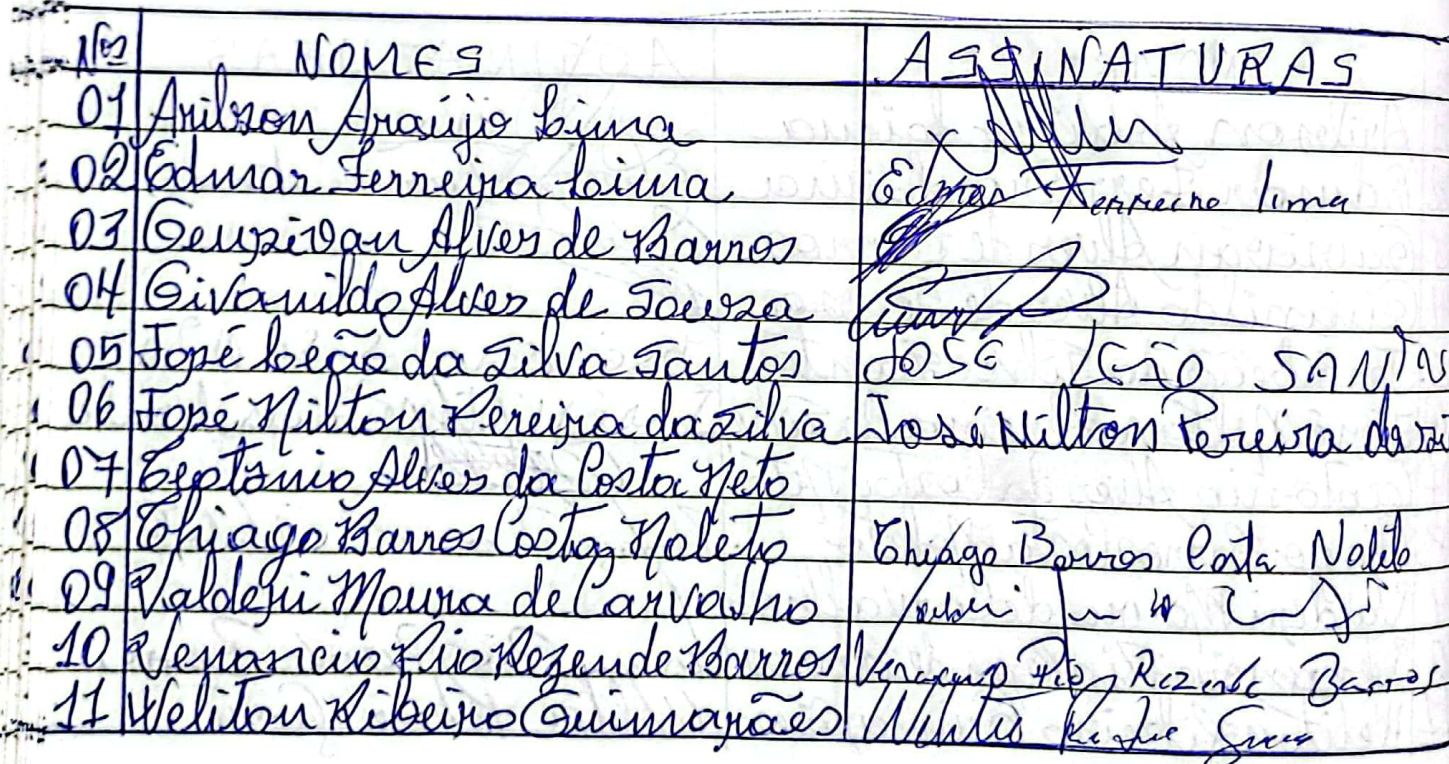 Nºs NOMES ASSINATURAS
01 Arilson Araújo Lima
02 Edmar Ferreira Lima Edmar Ferreira lima
03 Geuzivan Alves de Barros
04 Givanildo Alves de Souza
05 José Leão da Silva Santos JOSÉ LEÃO SANTOS
06 José Nilton Pereira da Silva José Nilton Pereira da
07 Alves da Costa Neto
08 Thiago Barros Costa Noleto Thiago Barros Costa Noleto
09 Valdeji Moura de Carvalho
10 Venancio Pio Rezende Barros Venancio Pio Rezende Barros
11 Weliton Ribeiro Guimarães